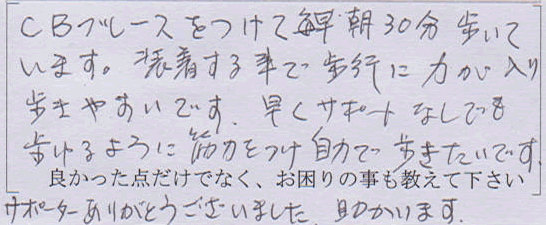 CBブレースをつけて毎早朝30分歩いて
います。装着する事で歩行に力が入り
歩きやすいです。早くサポートなしでも
歩けるように筋力をつけ自力で歩きたいです
良かった点だけでなく、お困りの事も教えて下さい
サポーターありがとうございました。助かります。